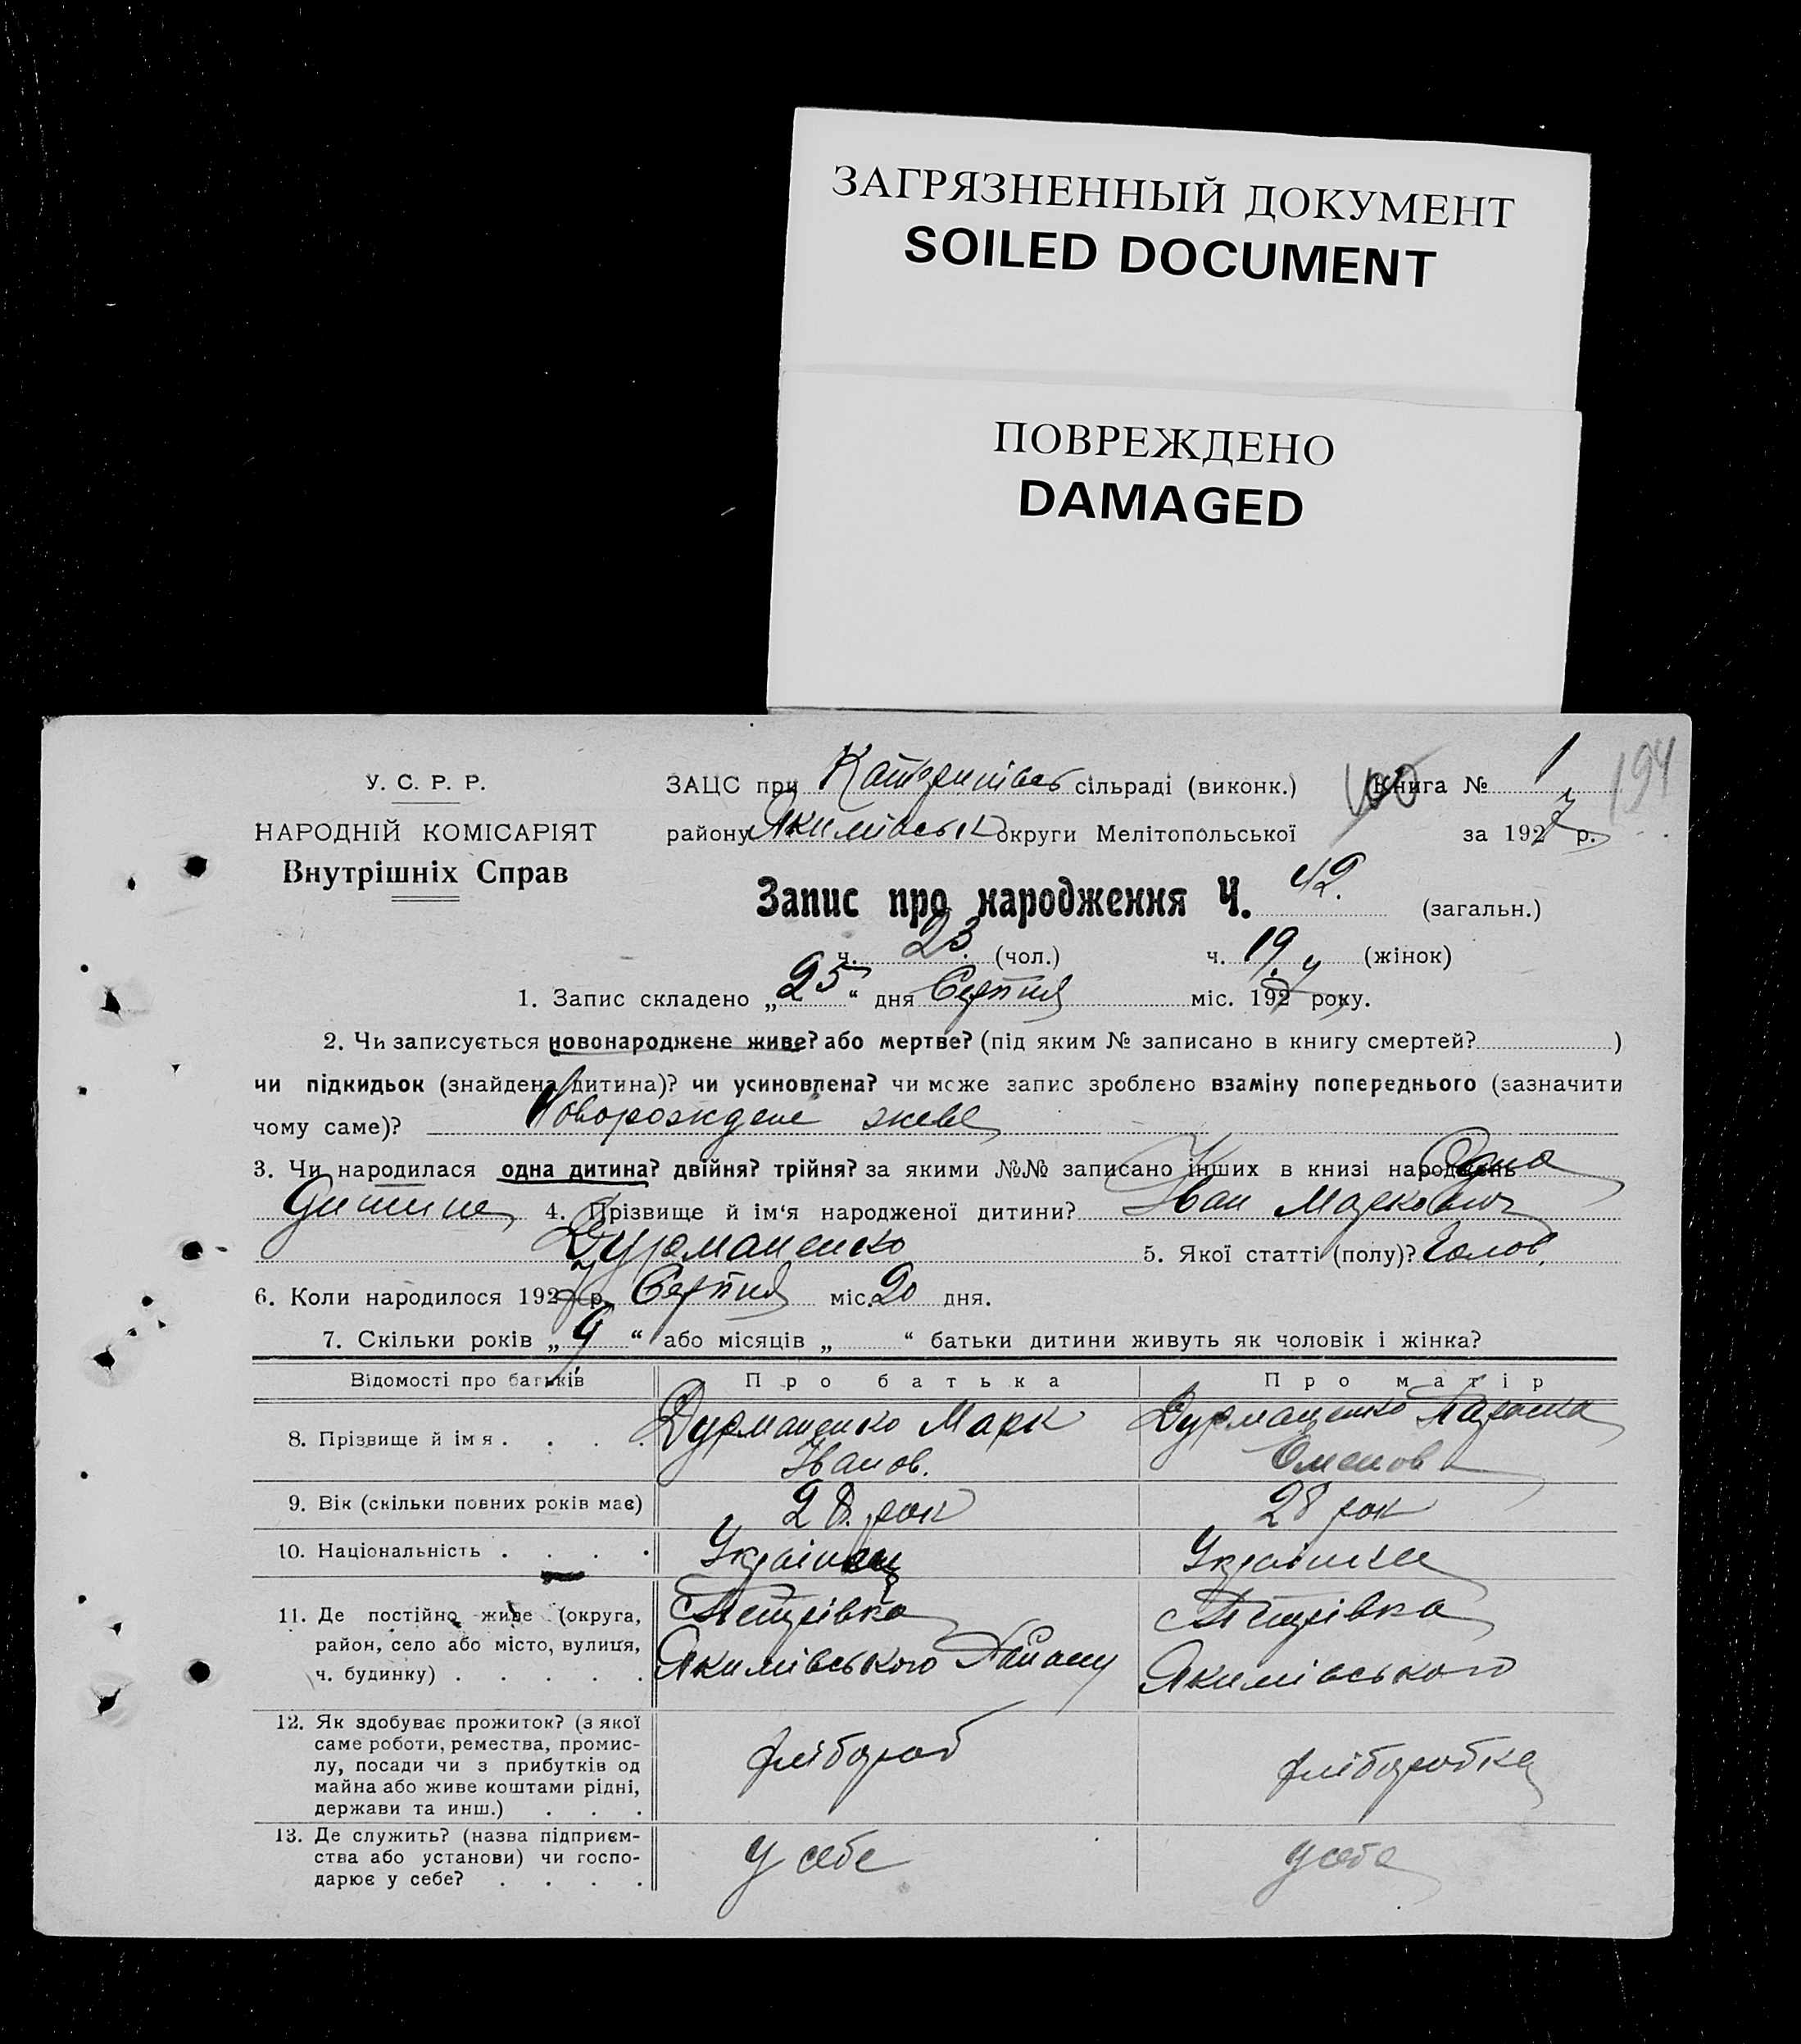 ЗАГРЯЗНЕННЫЙ ДОКУМЕНТ
SOILED DOCUMENT
ПОВРЕЖДЕНО
DAMAGED
У. С. Р. Р.
НАРОДНІЙ КОМІСАРІЯТ
Внутрішніх Справ
ЗАЦС при сільраді (виконк.) Книга № 1
194
району Якимівськ округи Мелітопольської за 1927 р.
Запис про народження Ч. 42. (загальн.)
ч. 23. (чол.) ч. 19. (жінок)
1. Запис складено „25“ дня Серпня міс. 1927 року.
2. Чи записується новонароджене живе? або мертве? (під яким № записано в книгу смертей? )
чи підкидьок (знайдена дитина)? чи усиновлена? чи може запис зроблено взаміну попереднього (зазначити
чому саме)? Новорождене живе
3. Чи народилася одна дитина? двійня? трійня? за якими №№ записано інших в книзі народжень Одна
дитина 4. Прізвище й ім‘я народженої дитини? Іван Маркович
Дурманенко 5. Якої статті (полу)? Чолов.
6. Коли народилося 1927 р. Серпня міс. 20 дня.
7. Скільки років „9“ або місяців „ “ батьки дитини живуть як чоловік і жінка?
Відомості про батьків Про батька Про матір
8. Прізвище й імя . . . . Дурманенко Марк Дурманенко Параска
Іванов.
9. Вік (скільки повних років має) 28 рок 28 рок
10. Національність . . . . Українец Українка
11. Де постійно живе (округа, Петрівка Петрівка
район, село або місто, вулиця, Якимівського Району Якимівського
ч. будинку) . . . . .
12. Як здобуває прожиток? (з якої
саме роботи, ремества, промис-
лу, посади чи з прибутків од хлібороб хліборобка
майна або живе коштами рідні,
держави та инш.) . . .
13. Де служить? (назва підприєм-
ства або установи) чи госпо- У себе У себе
дарює у себе? . . . .